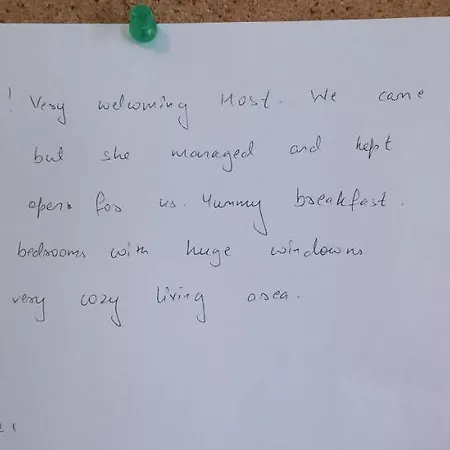 ! Very welcoming Host. We came
but she managed and kept
open for us. Yummy breakfast.
bedrooms with huge windowns
very cozy living area.